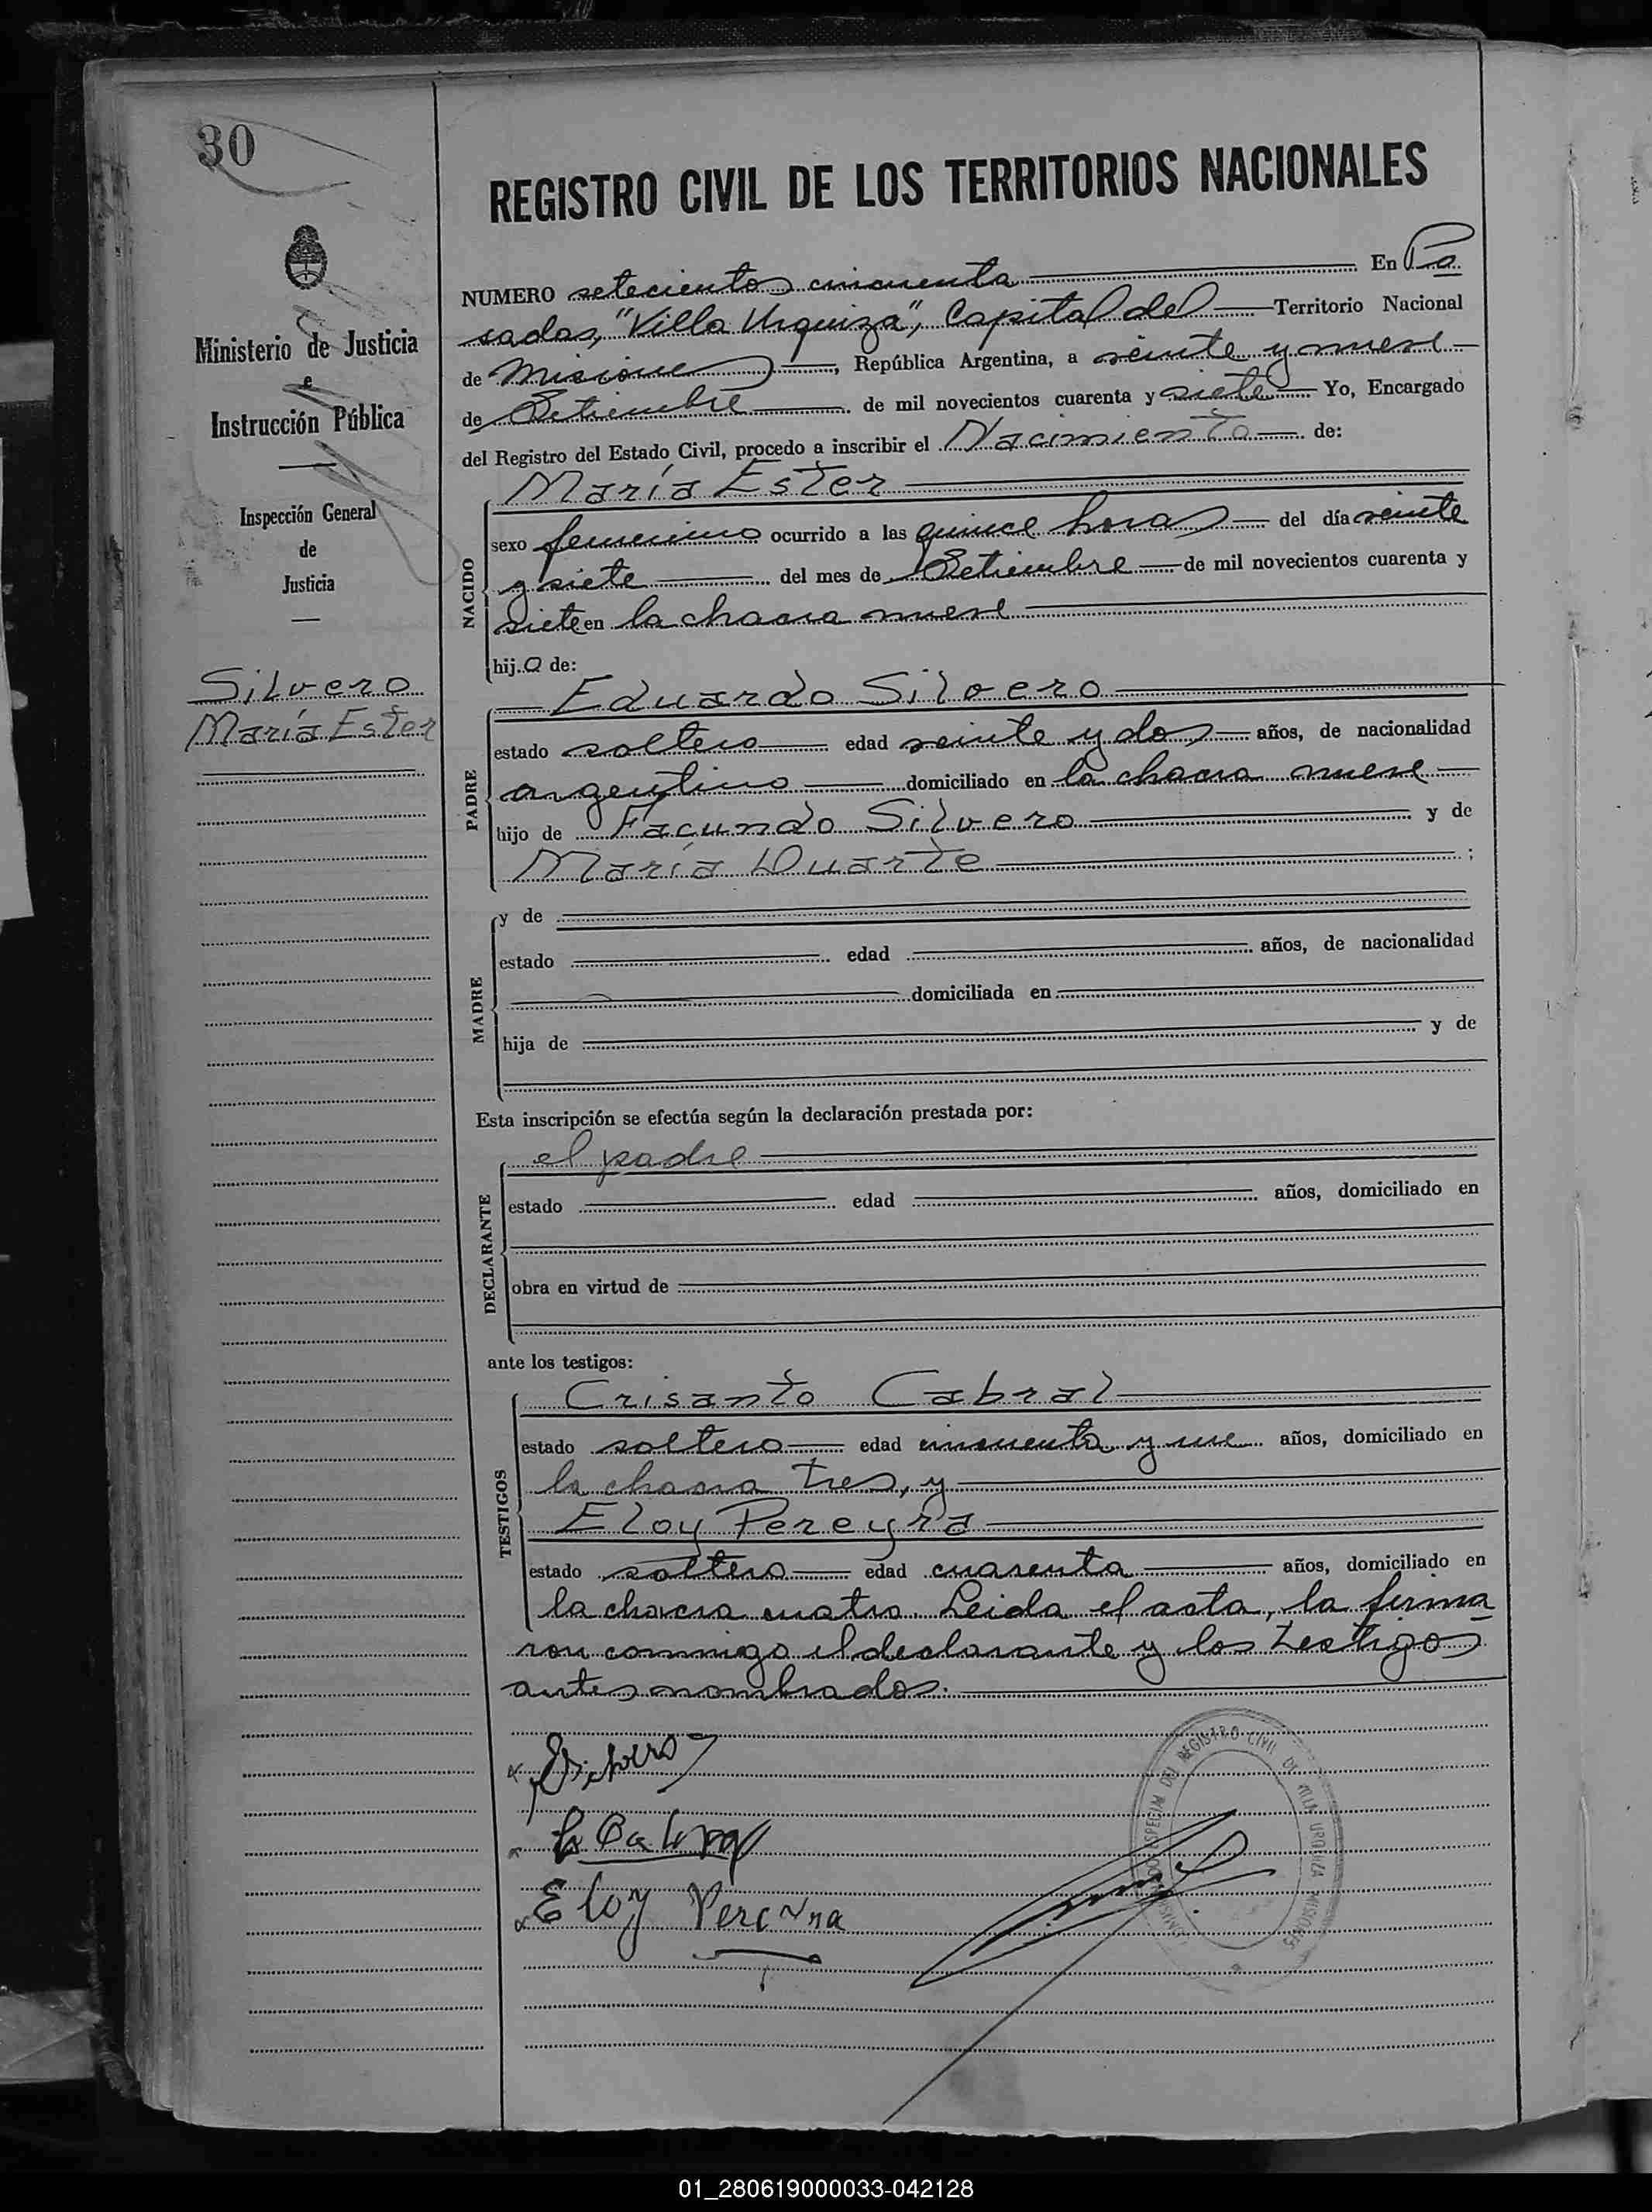 30
Ministerio de Justicia
e
Instrucción Pública
Inspección General
de
Justicia
Silvero
María Ester
REGISTRO CIVIL DE LOS TERRITORIOS NACIONALES
NUMERO setecientos cincuenta En Po
sadas, "Villa Urquiza", Capital del Territorio Nacional
de Misiones, República Argentina, a veinte y nueve
de Setiembre de mil novecientos cuarenta y siete Yo, Encargado
del Registro del Estado Civil, procedo a inscribir el Nacimiento de:
NACIDO
María Ester
sexo femenino ocurrido a las quince horas del día veinte
y siete del mes de Setiembre de mil novecientos cuarenta y
siete en la chacra nueve
hija de:
PADRE
Eduardo Silvero
estado soltero edad veinte y dos años, de nacionalidad
argentino domiciliado en la chacra nueve
hijo de Facundo Silvero y de
María Duarte ;
MADRE
y de
estado edad años, de nacionalidad
domiciliada en
hija de y de
Esta inscripción se efectúa según la declaración prestada por:
DECLARANTE
el padre
estado edad años, domiciliado en
obra en virtud de
ante los testigos:
TESTIGOS
Crisanto Cabral
estado soltero edad cincuenta y un años, domiciliado en
la chacra tres, y
Eloy Pereyra
estado soltero edad cuarenta años, domiciliado en
la chacra cuatro. Leida el acta, la firma
ron conmigo el declarante y los testigos
antes nombrados.
ESilvero
C Cabral
Eloy Pereyra
REGISTRO CIVIL DE VILLA URQUIZA MISIONES
01_280619000033-042128